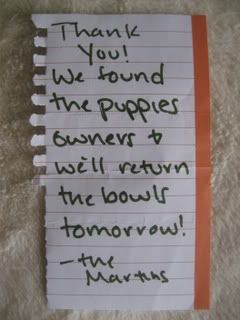 Thank
You!
We found
the puppies
owners &
we'll return
the bowls
tomorrow!
- the
Martins